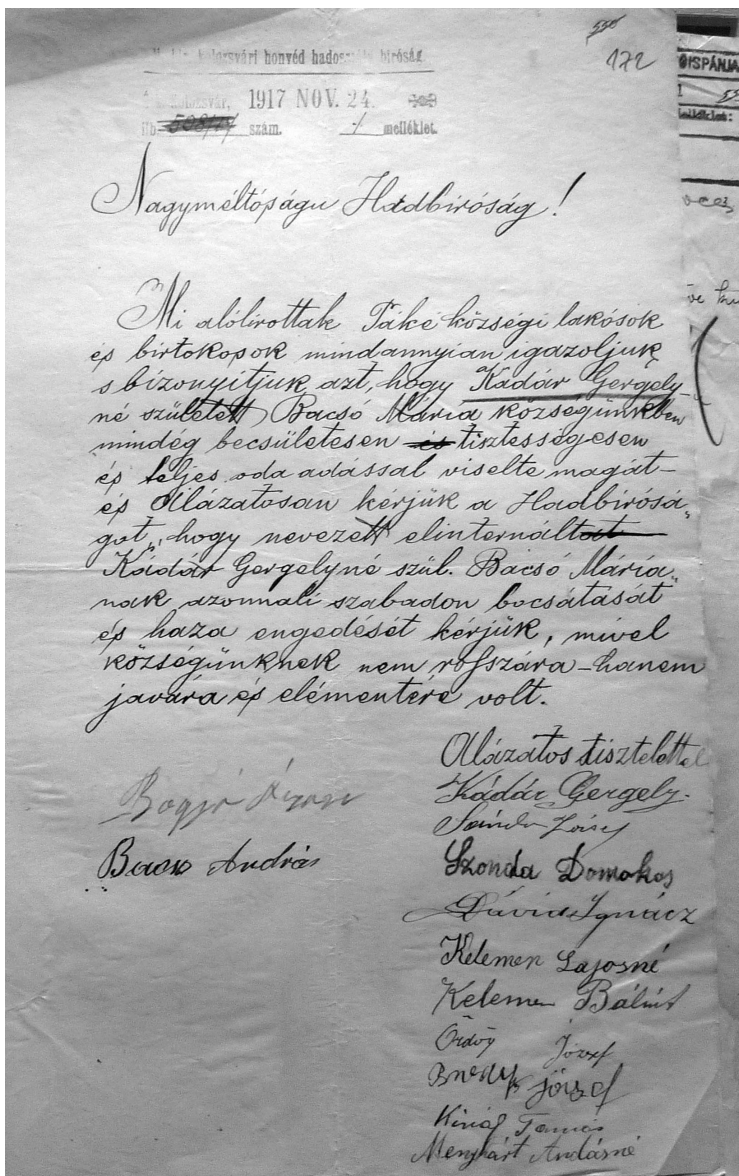 kolozsvári honvéd hadosztály biróság
172
Kolozsvár, 1917 NOV. 24.
Hb 508/17 szám. 1 melléklet.
ŐISPÁNJA
Nagyméltóságu Hadbiróság!
Mi alólirottak Páké községi lakósok
és birtokosok mindannyian igazoljuk
s bizonyitjuk azt, hogy Kádár Gergely-
né született Bacsó Mária községünkben
mindég becsületesen és tisztességesen
és teljes oda adással viselte magát -
és Alázatosan kérjük a Hadbirósá„
got, hogy nevezett elinternáltat
Kádár Gergelyné szül. Bacsó Mária„
nak azonnali szabadon bocsátását
és haza engedését kérjük, mivel
községünknek nem rosszára - hanem
javára és elémentére volt.
Alázatos tisztelettel
Kádár Gergely.
András
Szonda Domokos
Dávid Ignácz
Kelemen Lajosné
Kelemen Bálint
Ördög József
József
Tamás
Menyhárt Andásné